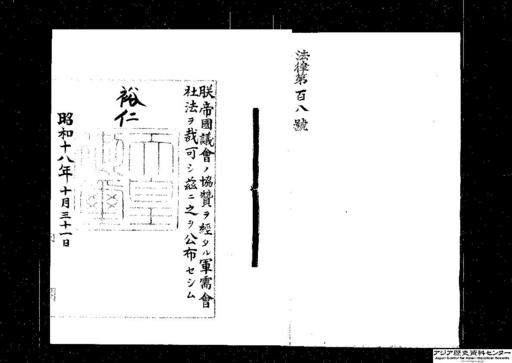 法律第百八號
朕帝國議會ノ協贊ヲ經タル軍需會
社法ヲ裁可シ茲ニ之ヲ公布セシム
裕仁
昭和十八年十月三十一日
アジア歴史資料センター
Japan Center for Asian Historical Records